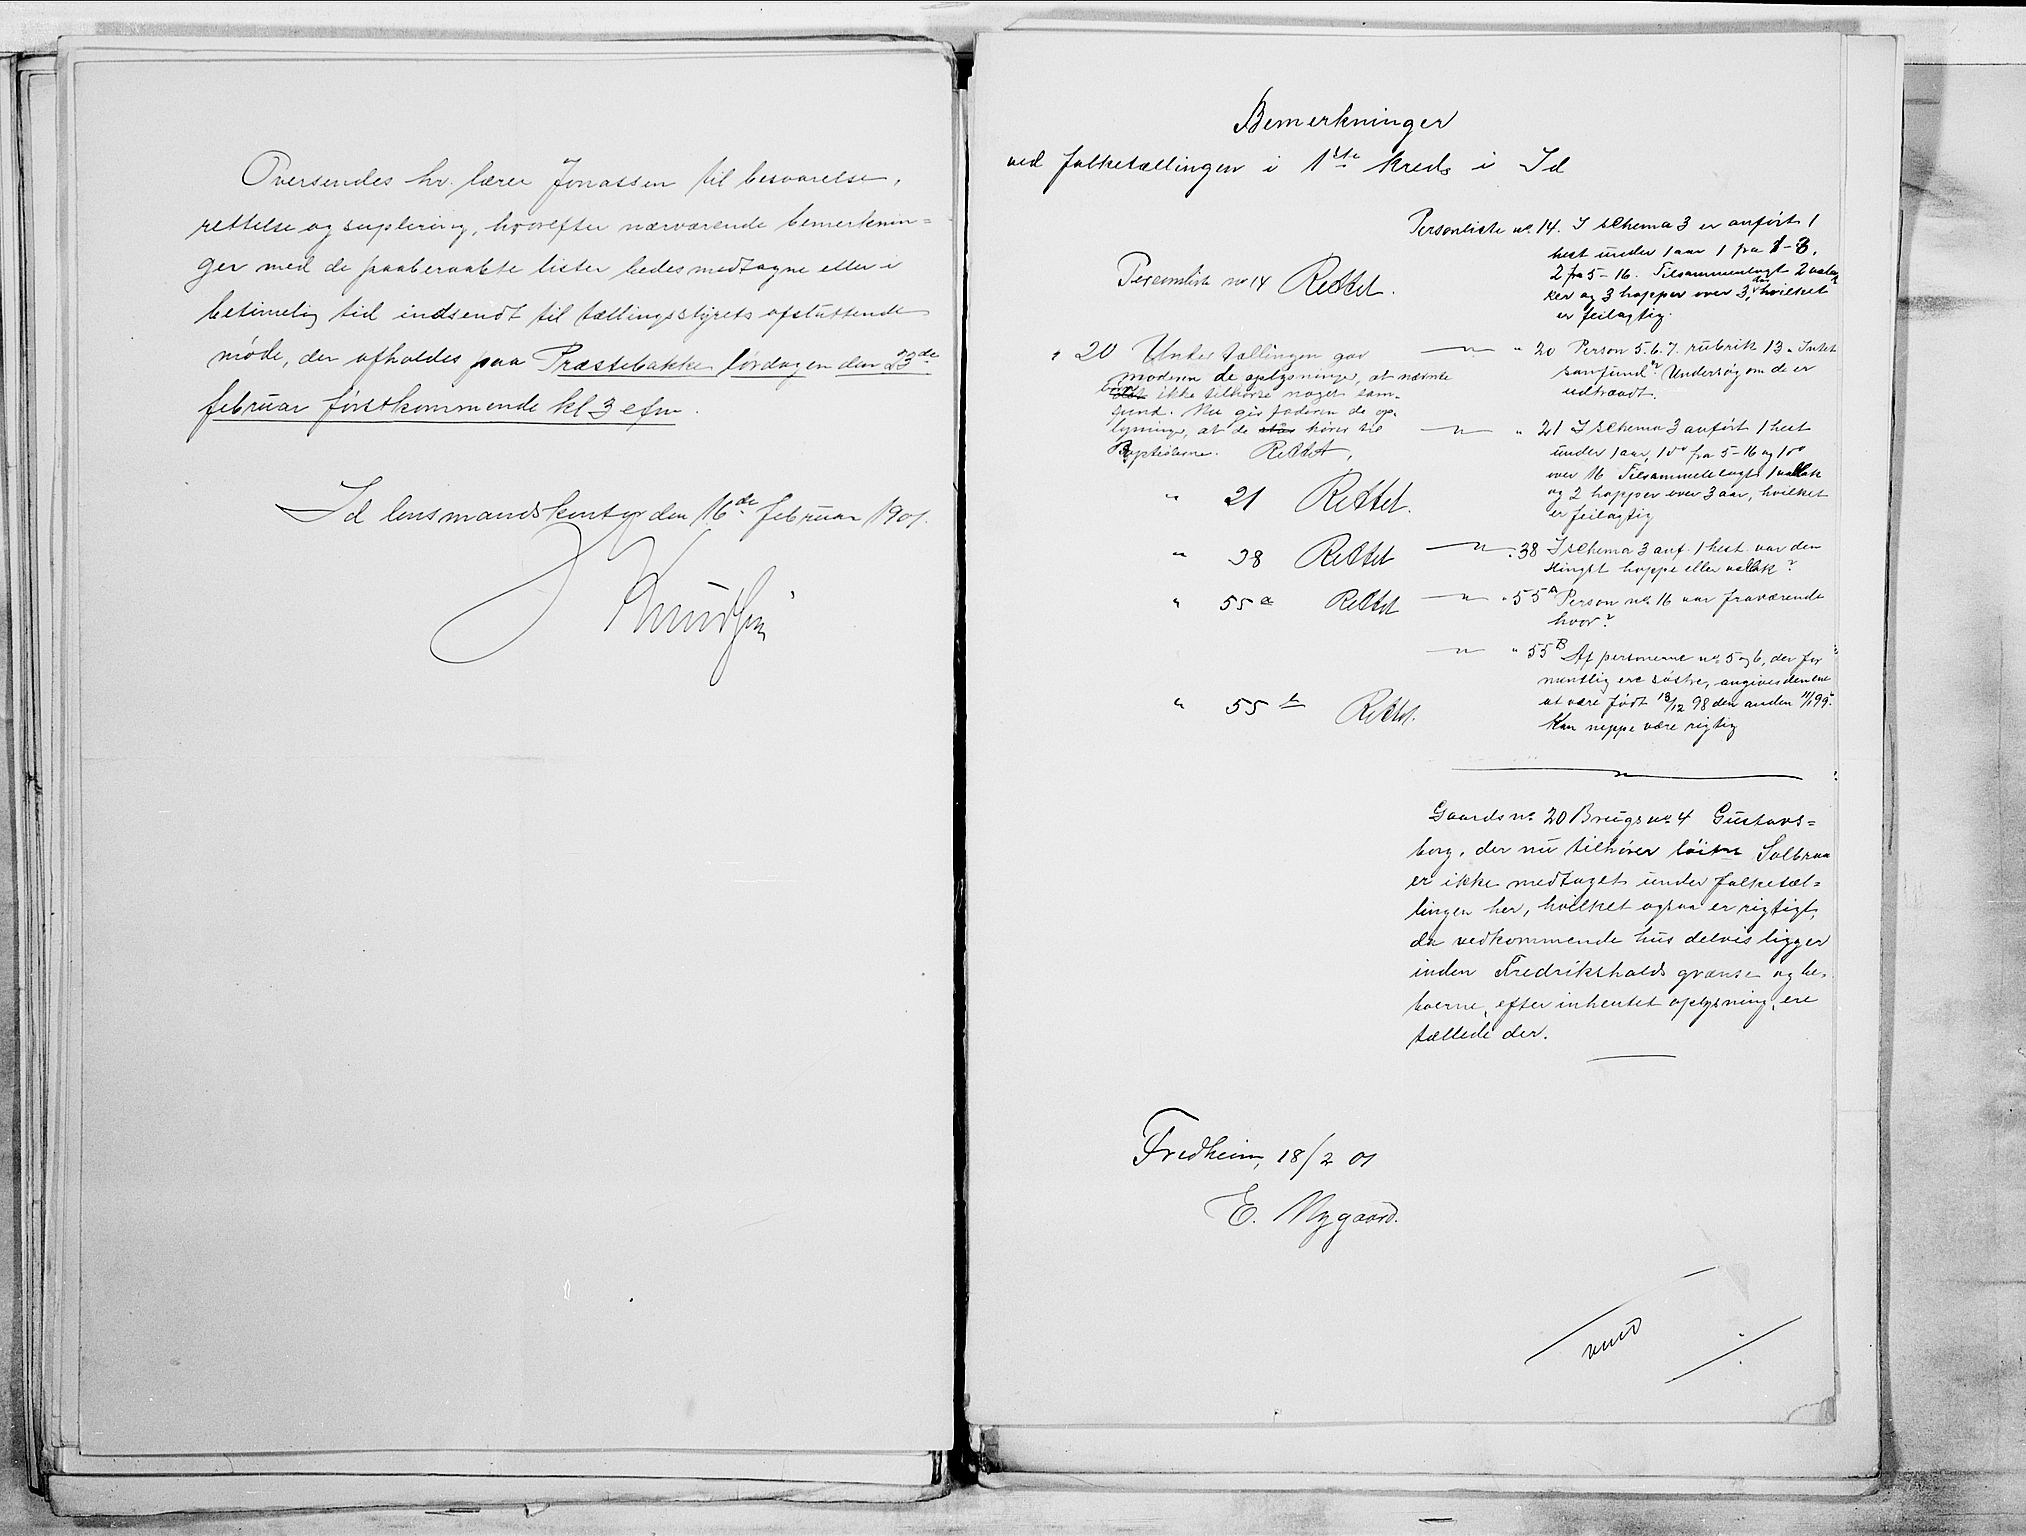 Oversendes hr. lærer Jonassen til besvarelse,
rettelse og suplering, hvorefter nærværende bemerknin=
ger med de paaberaabte lister bedes medtagne eller i
betimelig tid indsendt til tællingsstyrets afsluttende
møde, der afholdes paa Præstebakke lørdagen den 23de
februar førstkommende kl 3 efm.
Id lensmandskontor den 16de februar 1901.
Knudsen
Bemerkninger
ved folketællingen i 1ste kreds i Id
Personliste no 14. I schema 3 er anført 1
hest under 1 aar 1 fra 1-3,
2 fra 5-16. Tilsammenlagt 2 valla
ker og 3 hopper over 3 aar, hvilket
er feilagtig.
Personliste no 14 Rettet.
" 20 Under tællingen gav
moderen de oplysninger, at nævnte
børn ikke tilhørte noget sam-
fund. Nu gir faderen de op-
lysninger, at de staar hører til
Baptisterne. Rettet.
" 20 Person 5. 6. 7. rubrik 13 "Intet
samfund"? Undersøg om de er
udtraadt.
" 21 I schema 3 anført 1 hest
under 1 aar, 1 do fra 5-16 og 1 do
over 16 Tilsammenlagt 1 vallak
og 2 hopper over 3 aar, hvilket
er feilagtig
" 21 Rettet.
" 38 Rettet
" 38 I schema 3 anf. 1 hest. var den
Hingst hoppe eller vallak?
" 55 a Rettet
" 55 A Person no 16 var fraværende
hvor?
" 55 B Af personerne no 5 og 6, der for
mentlig ere søstre, angives den ene
at være født 18/12 98 den anden 11/1 99.
Kan neppe være rigtig
" 55 b Rettet.
Gaards no 20 Brugs no 4 Gustavs=
borg, der nu tilhører løitn Solbraa
er ikke medtaget under folketæl=
lingen her, hvilket ogsaa er rigtigt,
da vedkommende hus delvis ligger
inden Fredrikshalds grænse og be-
boerne, efter inhentet oplysning, ere
tællede der.
Fredheim, 18/2 01
E. Nygaard.